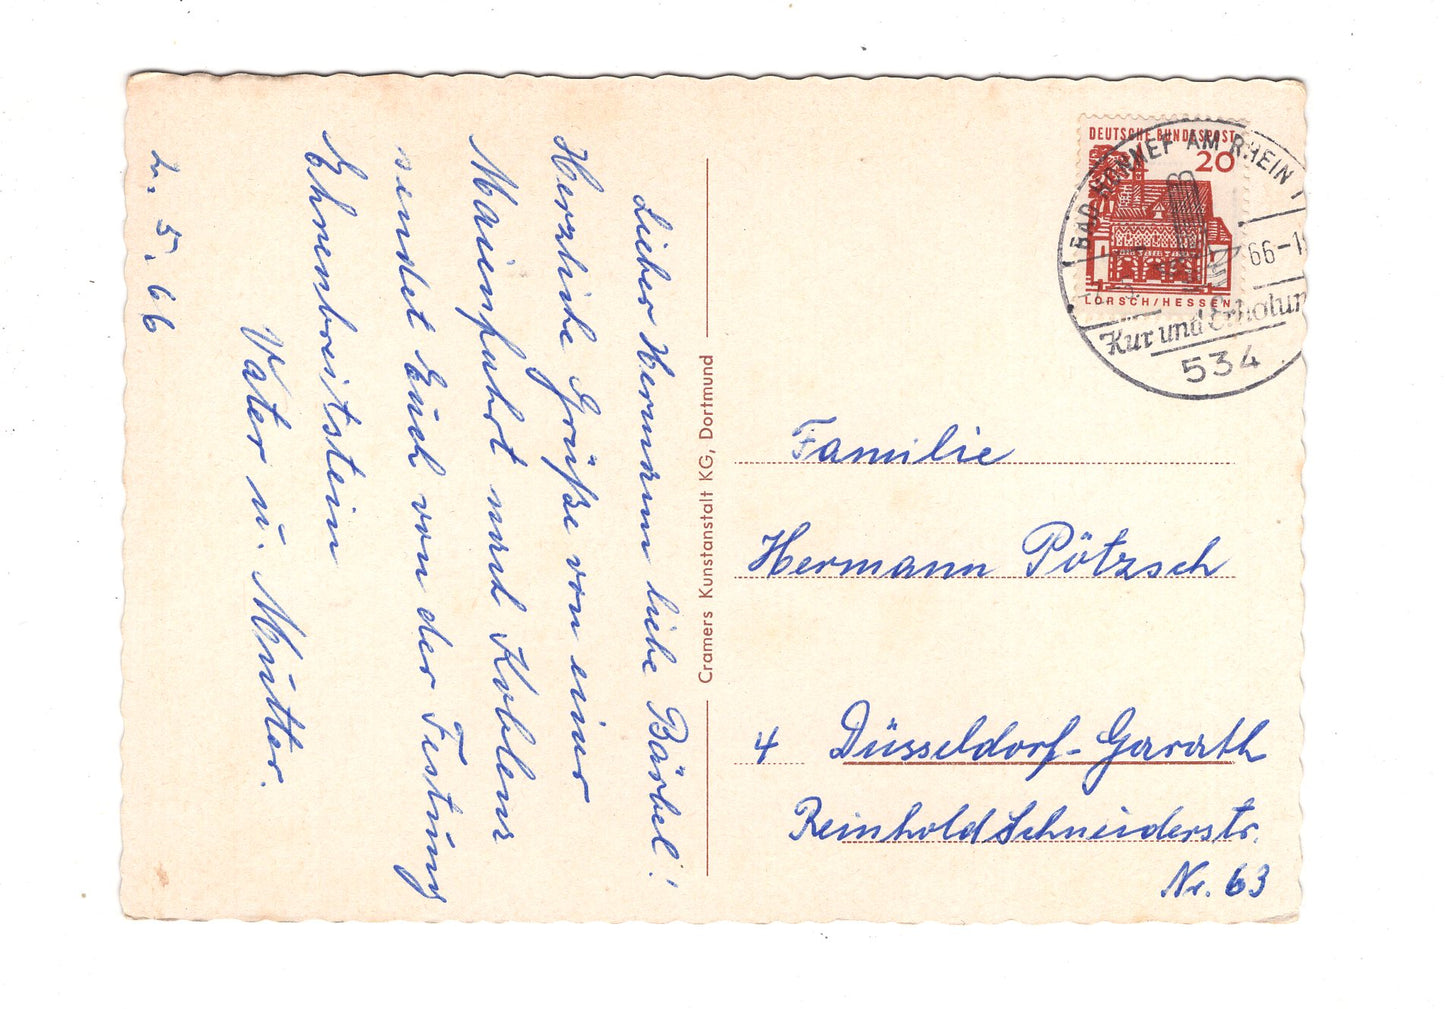 Lieber Hermann liebe Bärbel!
Herzliche Grüße von einer
Maienfahrt nach Koblenz
sendet Euch von der Festung
Ehrenbreitstein
Vater u. Mutter.
2.5.66
Cramers Kunstanstalt KG, Dortmund
DEUTSCHE BUNDESPOST
20
LORSCH/HESSEN
BAD HONNEF AM RHEIN 1
66-1
Kur und Erholun
534
Familie
Hermann Pötzsch
4 Düsseldorf-Garath
Reinhold Schneiderstr.
Nr. 63